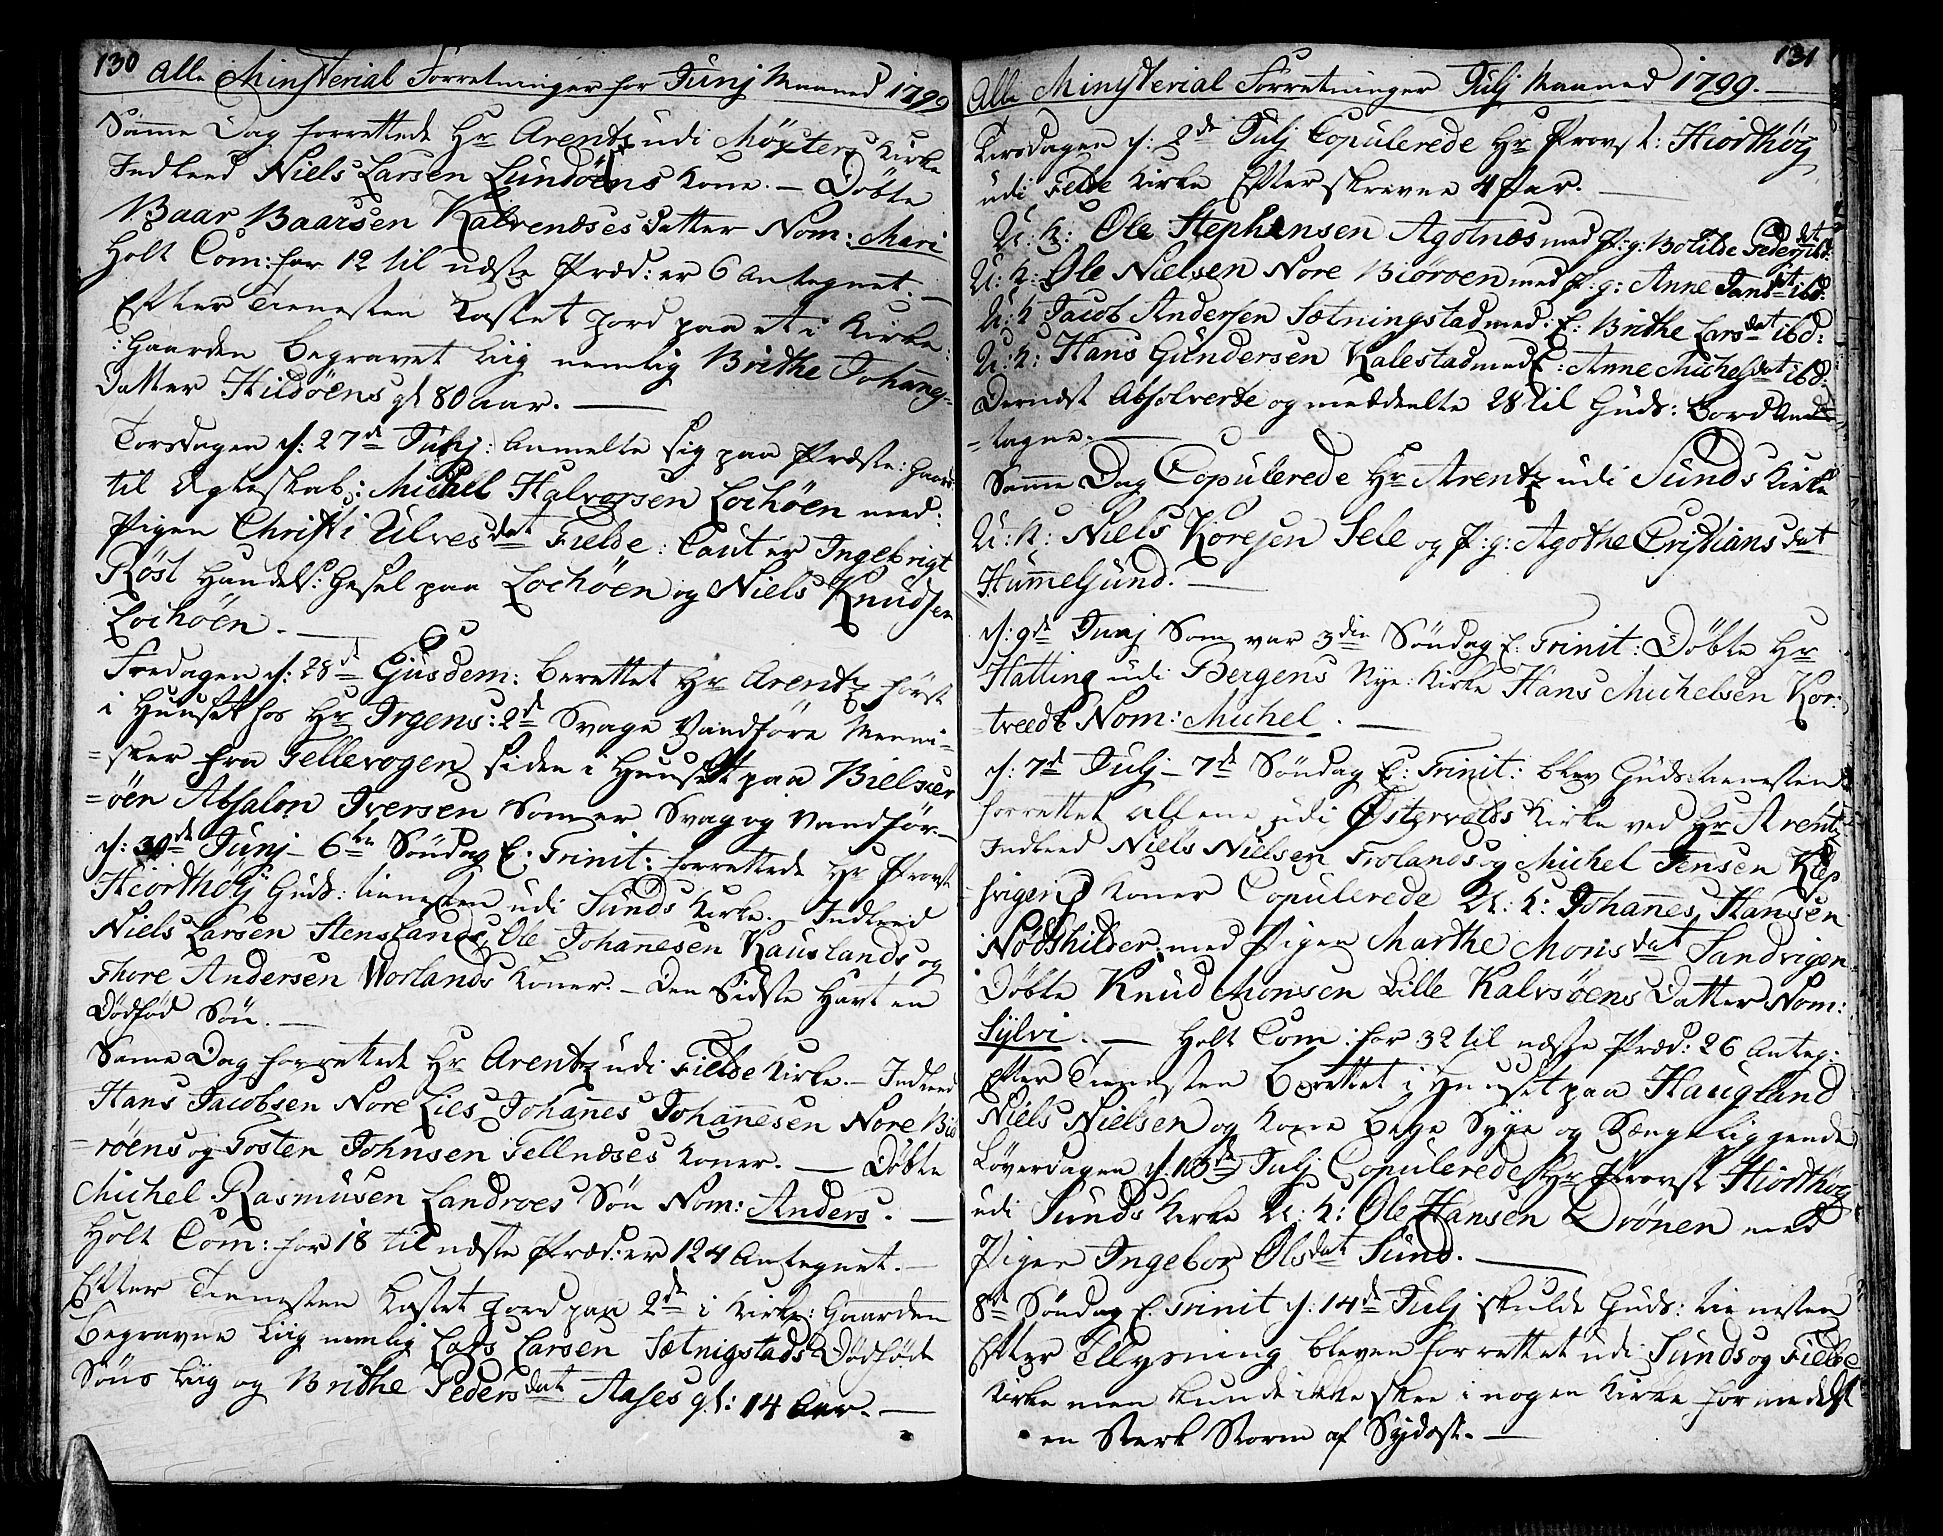 130 Alle Ministerial Forretninger for Junj Maaned 1799
Samme Dag forrettede Hr Arentz udi Møgster Kirke
Indleed Niels Larsen Lundöens Kone. — Döbte
Baar Baarsen Kalvenæses Datter Nom: Mari
Holt Com: for 12 til næste Præd: er 6 Antegnet. —
Efter Tienesten kastet Jord paa et i Kirke:
:Gaarden begravet Liig nemlig Brithe Johannes-
Datter Hildöens gl 80 aar. —
Torsdagen d: 27de Junj: Anmelte sig paa Præste: Gaard
til Ægteskab: Michel Halvorsen Lochöen med:
Pigen Christi Ulvesdat Fielde: Caut er Ingebrigt
Röst Handels: Gesel paa Lochöen og Niels Knudsen
Lochöen. —
Fredagen d: 28de Ejusdem: berettet Hr Arentz först
i Huuset hos Hr Irgens: 2de Svage Vandföre Menni-
-sker fra Tellevogen, siden i Huuset paa Bielkier
-öen Absalon Iversen Som er Svag og Vandför. —
d: 30de Junj — 6te Söndag E: Trinit: forrettede Hr Provst
Hiorthöÿ Guds: tienesten udi Sunds Kirke. — Indleed
Niels Larsen Stenslands, Ole Johannesen Kauslands og
Thore Andersen Vorlands Koner. — Den Sidste Havt en
Dödföd Sön. —
Same Dag forrettede Hr Arentz udi Fielde Kirke. — Indleed
Hans Jacobsen Nore Lies, Johannes Johannesen Nore Biö
-röens og Tosten Johnsen Tellnæses Koner. — Döbte
Michel Rasmusen Landroes Sön Nom: Anders. —
Holt Com: for 18 til næste Præd: er 124 Antegnet. —
Efter Tienesten kastet Jord paa 2de i Kirke: Gaarden
begravne Liig nemlig Lars Larsen Sætnigstads Dödföde
Söns Liig og Brithe Pedersdat Aases gl: 14 Aar. —
131
Alle Ministerial Forretninger Julj Maaned 1799. —
Tirsdagen d: 2de Julj Copulerede Hr Provst: Hiorthöÿ
udi Fielde Kirke Efterskrevne 4 Par. —
U: K: Ole Stephensen Agotnæs med P: g: Botilde Pedersdat ibd:
U: K: Ole Nielsen Nore Biöröen med P: g: Anne Jansdat ibd:
U: K Jacob Andersen Sætningstad med: E: Brithe Larsdat ibd:
U: K: Hans Gundersen Kalestad med E: Anne Michelsdat ibd:
Dernæst Absolverte og meddeelte 28 til Guds: Bord Ant-
-tagne. —
Samme Dag Copulerede Hr Arentz udi Sunds Kirke
U: K: Niels Koresen Sele og P: g: Agothe Cristiansdat
Hummelsund. —
d: 9de Junj Som var 3die Söndag E: Trinit: Döbte Hr
Hatting udi Bergens Nye: Kirke Hans Michelsen Kor-
-treeds Nom: Michel. —
d: 7de Julj — 7de Söndag E: Trinit: blev Guds: tienesten
forrettet allene udi Østervolds Kirke ved Hr Arentz
Indleed Niels Nielsen Trolands og Michel Jensen Klep
-svigen Koner Copulerede U: K: Johannes Hansen
Nodshilder, med Pigen Marthe Monsdat Sandvigen
Döbte Knud Monsen Lille Kalvsöens Datter Nom:
Sylvi. — Holt Com: for 32 til næste Præd: 26 Anteg:
Efter Tienesten berettet i Huuset paa Haugland
Niels Nielsen og Kone bege Syge og Sængeliggende
Löverdagen d: 13de Julj Copulerede Hr Provst Hiorthöÿ
udi Sunds Kirke U: K: Ole Hansen Drönen med
Pigen Ingebor Olsdat Sund. —
8de Söndag E: Trinit d: 14de Julj skulde Guds: tienesten
Efter Tllysning bleven forrettet udi Sunds og Fielde
Kirke men kunde ikke skee i nogen Kirke formedelst
en Sterk Storm af Sydost. —